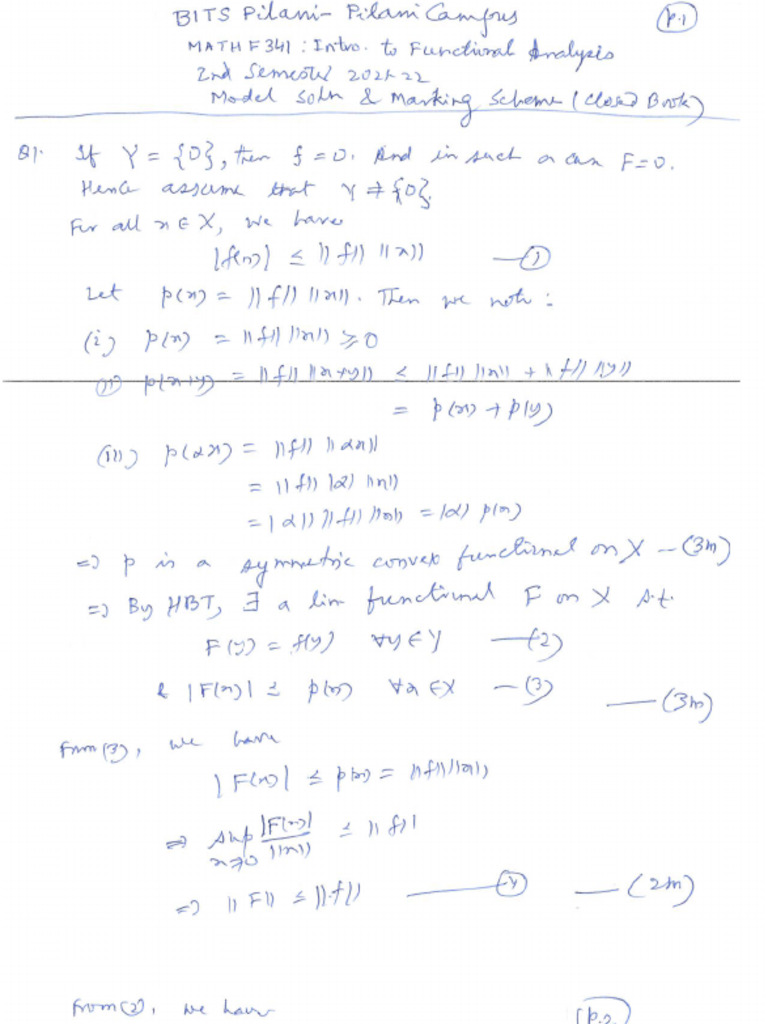 BITS Pilani- Pilani Campus (P.1)
MATH F341 : Intro. to Functional Analysis
2nd Semester 2021-22
Model Soln & Marking Scheme (Closed Book)
Q1. If Y = {0}, then f = 0. And in such a case F = 0.
Hence assume that Y ≠ {0}.
For all x ∈ X, we have
|f(x)| ≤ ||f|| ||x|| — (1)
Let p(x) = ||f|| ||x||. Then we note :
(i) p(x) = ||f|| ||x|| ≥ 0
(ii) p(x+y) = ||f|| ||x+y|| ≤ ||f|| ||x|| + ||f|| ||y||
= p(x) + p(y)
(iii) p(αx) = ||f|| ||αx||
= ||f|| |α| ||x||
= |α| ||f|| ||x|| = |α| p(x)
=> p is a symmetric convex functional on X — (3m)
=> By HBT, ∃ a lin functional F on X s.t.
F(y) = f(y) ∀y ∈ Y — (2)
& |F(x)| ≤ p(x) ∀x ∈ X — (3) — (3m)
From (3), we have
|F(x)| ≤ p(x) = ||f|| ||x||
=> sup x≠0 |F(x)| / ||x|| ≤ ||f||
=> ||F|| ≤ ||f|| — (4) — (2m)
From (2), we have (P.2)